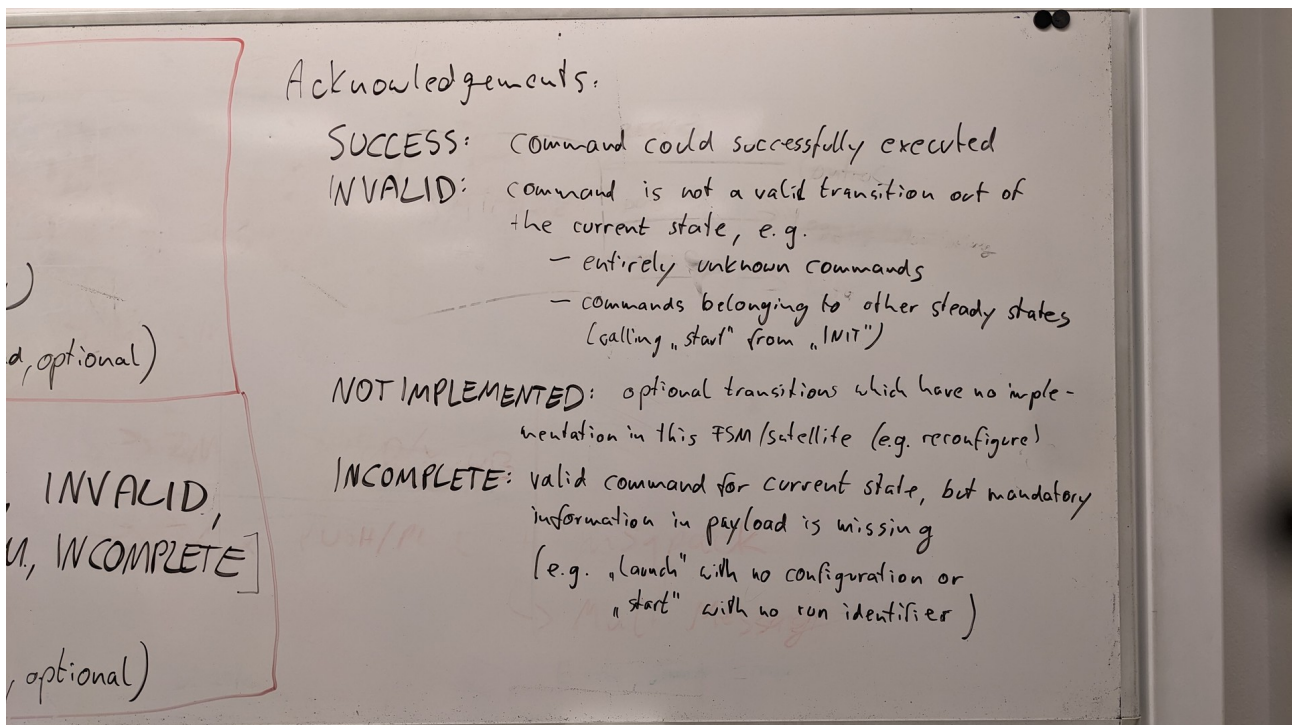 Acknowledgements:
SUCCESS: command could successfully executed
INVALID: command is not a valid transition out of
the current state, e.g.
– entirely unknown commands
– commands belonging to other steady states
(calling „start" from „INIT")
NOT IMPLEMENTED: optional transitions which have no imple-
mentation in this FSM/satellite (e.g. reconfigure)
INCOMPLETE: valid command for current state, but mandatory
information in payload is missing
(e.g. „launch" with no configuration or
„start" with no run identifier)
)
, optional)
, INVALID,
, INCOMPLETE]
, optional)